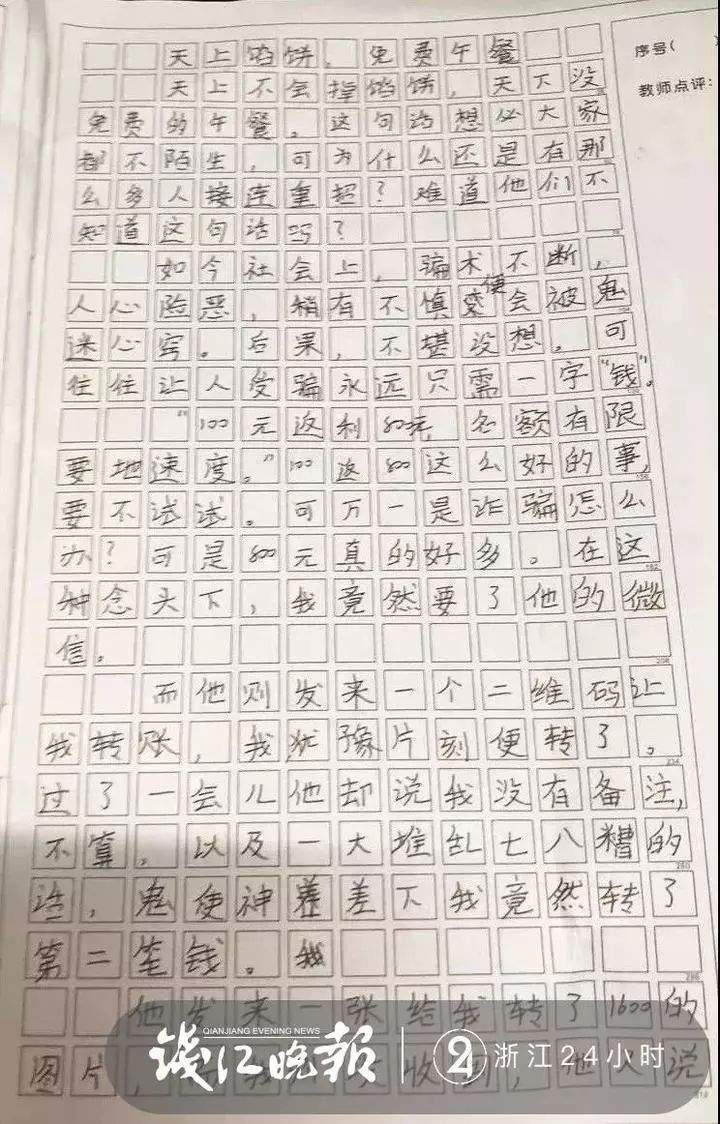 天上馅饼，免费午餐
序号（
天上不会掉馅饼，天下没
教师点评：
免费的午餐。这句话想必大家
都不陌生，可为什么还是有那
么多人接连重蹈？难道他们不
知道这句话吗？
如今社会上，骗术不断，
人心险恶，稍有不慎便会被鬼
迷心窍。后果，不堪设想。可
往往让人受骗永远只需一字“钱”。
“100元返利800元，名额有限
要地速度。”100返800这么好的事，
要不试试。可万一是诈骗怎么
办？可是800元真的好多。在这
种念头下，我竟然要了他的微
信。
而他则发来一个二维码让
我转账，我犹豫片刻便转了。
过了一会儿他却说我没有备注，
不算，以及一大堆乱七八糟的
话，鬼使神差差下我竟然转了
第二笔钱。我
他发来一张给我转了1600的
图片，我收到，他又说
QIANJIANG EVENING NEWS
钱江晚报 浙江24小时